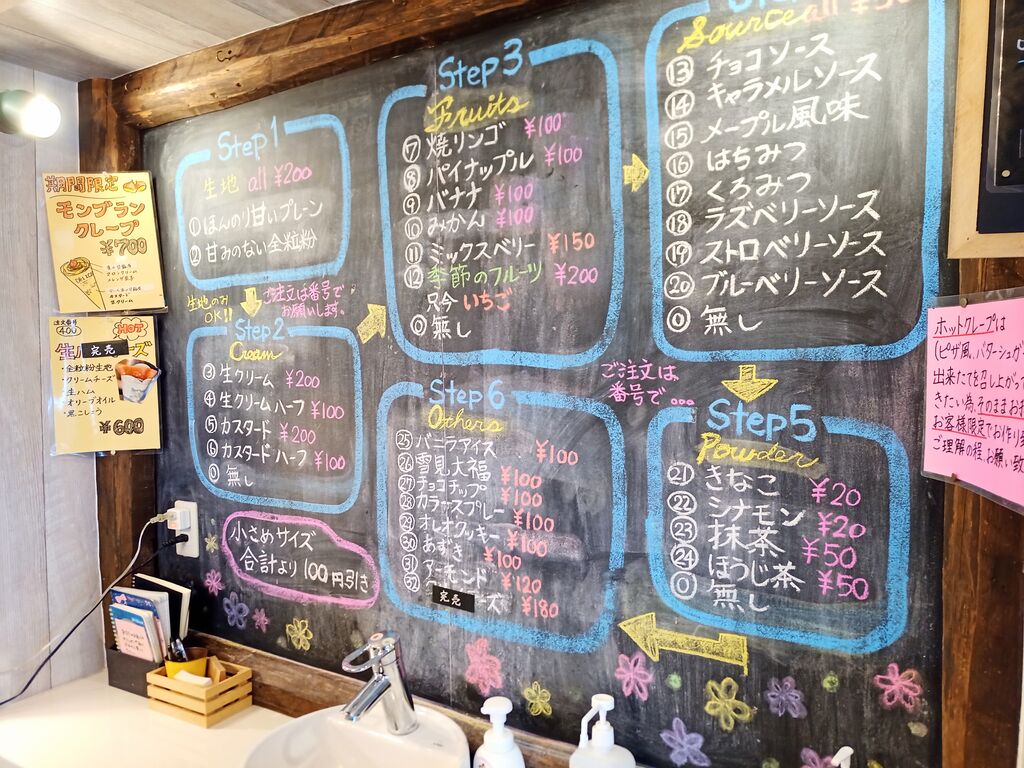 期間限定
モンブラン
クレープ
¥700
注文番号
40
HOT
完売
・全粒粉生地
・クリームチーズ
・生ハム
・オリーブオイル
・黒こしょう
¥600
Step1
生地 all ¥200
①ほんのり甘いプレーン
②甘みのない全粒粉
生地のみ
OK!!
ご注文は番号で
お願いします。
Step2
Cream
③生クリーム ¥200
④生クリームハーフ ¥100
⑤カスタード ¥200
⑥カスタードハーフ ¥100
⓪無し
小さめサイズ
合計より100円引き
Step3
Fruits
⑦焼リンゴ ¥100
⑧パイナップル ¥100
⑨バナナ ¥100
⑩みかん ¥100
⑪ミックスベリー ¥150
⑫季節のフルーツ ¥200
只今いちご
⓪無し
Source all
⑬チョコソース
⑭キャラメルソース
⑮メープル風味
⑯はちみつ
⑰くろみつ
⑱ラズベリーソース
⑲ストロベリーソース
⑳ブルーベリーソース
⓪無し
ご注文は
番号で…
Step5
Powder
㉑きなこ ¥20
㉒シナモン ¥20
㉓抹茶 ¥50
㉔ほうじ茶 ¥50
⓪無し
Step6
Others
㉕バニラアイス ¥100
㉖雪見大福 ¥100
㉗チョコチップ ¥100
㉘カラースプレー ¥100
㉙オレオクッキー ¥100
㉚あずき ¥100
㉛アーモンド ¥120
㉜完売 ーズ ¥180
ホットクレープは
(ピザ風、バターシュガ
出来たてを召し上がって
きたい為、そのままお
お客様限定でお作り
ご理解の程、お願い致